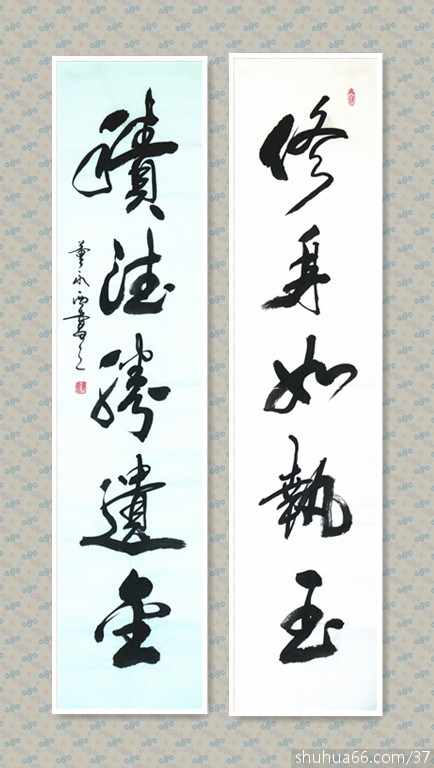 修身如執玉
積德勝遺金
董永西書之
shuhua66.com/37